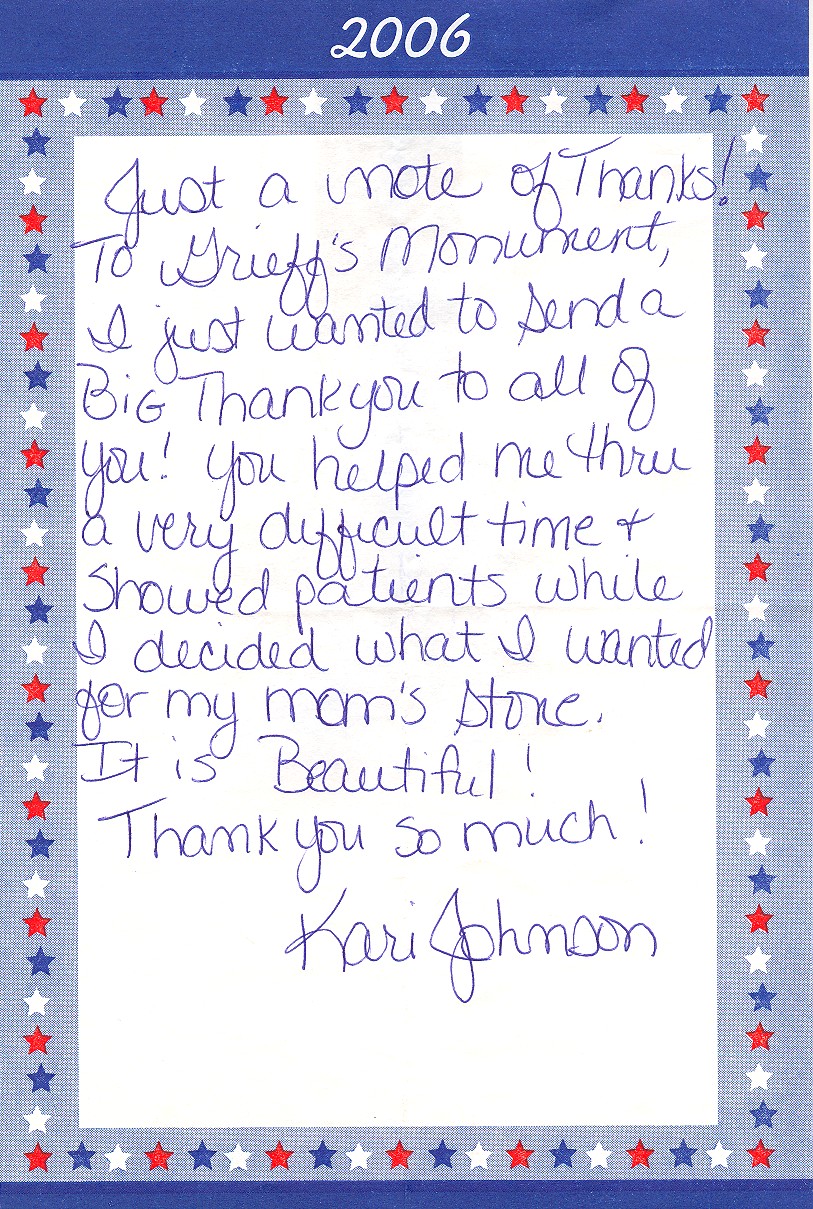 2006
Just a note of Thanks!
To Grieff's Monument,
I just wanted to send a
Big Thank you to all of
you! You helped me thru
a very difficult time +
Showed patients while
I decided what I wanted
for my mom's stone.
It is Beautiful!
Thank you so much!
Kari Johnson